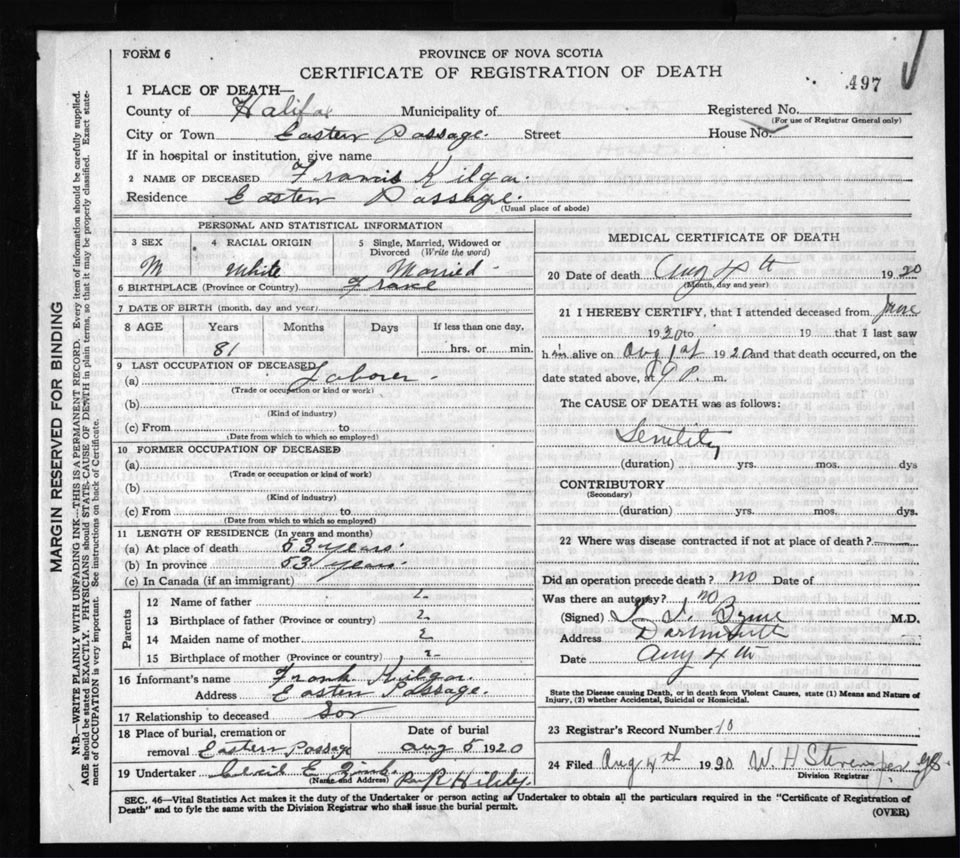 FORM 6
PROVINCE OF NOVA SCOTIA
CERTIFICATE OF REGISTRATION OF DEATH
497
1 PLACE OF DEATH—
County of Halifax Municipality of Registered No.
(For use of Registrar General only)
City or Town Eastern Passage. Street House No.
If in hospital or institution, give name
2 NAME OF DECEASED Francis Kilgar.
Residence Eastern Passage.
(Usual place of abode)
PERSONAL AND STATISTICAL INFORMATION
3 SEX 4 RACIAL ORIGIN 5 Single, Married, Widowed or
Divorced (Write the word)
M White Married
6 BIRTHPLACE (Province or Country)
7 DATE OF BIRTH (month, day and year)
8 AGE Years Months Days If less than one day,
81 hrs. or min.
9 LAST OCCUPATION OF DECEASED
(a) Laborer
(Trade or occupation or kind or work)
(b)
(Kind of industry)
(c) From to
(Date from which to which so employed)
10 FORMER OCCUPATION OF DECEASED
(a)
(Trade or occupation or kind of work)
(b)
(Kind of industry)
(c) From to
(Date from which to which so employed)
11 LENGTH OF RESIDENCE (In years and months)
(a) At place of death 53 years.
(b) In province 53 years.
(c) In Canada (if an immigrant)
Parents
12 Name of father
13 Birthplace of father (Province or country)
14 Maiden name of mother
15 Birthplace of mother (Province or country)
16 Informant's name Frank Kilgar.
Address Eastern Passage.
17 Relationship to deceased Son
18 Place of burial, cremation or Date of burial
removal Eastern Passage Aug 5 1920
19 Undertaker Cecil E
(Name and Address)
MEDICAL CERTIFICATE OF DEATH
20 Date of death Aug 4th 1920
(Month, day and year)
21 I HEREBY CERTIFY, that I attended deceased from June
1920 to 19 that I last saw
him alive on Aug 1st 1920 and that death occurred, on the
date stated above, at 9 P. m.
The CAUSE OF DEATH was as follows:
Senility
(duration) yrs. mos. dys
CONTRIBUTORY
(Secondary)
(duration) yrs. mos. dys.
22 Where was disease contracted if not at place of death?
Did an operation precede death? no Date of
Was there an autopsy? no
(Signed) Byrne M.D.
Address Dartmouth
Date Aug 4th
State the Disease causing Death, or in death from Violent Causes, state (1) Means and Nature of
Injury, (2) whether Accidental, Suicidal or Homicidal.
23 Registrar's Record Number 10
24 Filed Aug 4th 1920 W. H. Stevens
Division Registrar
SEC. 46—Vital Statistics Act makes it the duty of the Undertaker or person acting as Undertaker to obtain all the particulars required in the "Certificate of Registration of
Death" and to fyle the same with the Division Registrar who shall issue the burial permit.
(OVER)
MARGIN RESERVED FOR BINDING
N.B.—WRITE PLAINLY WITH UNFADING INK—THIS IS A PERMANENT RECORD. Every item of information should be carefully supplied.
AGE should be stated EXACTLY. PHYSICIANS should STATE CAUSE OF DEATH in plain terms, so that it may be properly classified. Exact state-
ment of OCCUPATION is very important. See instructions on back of Certificate.